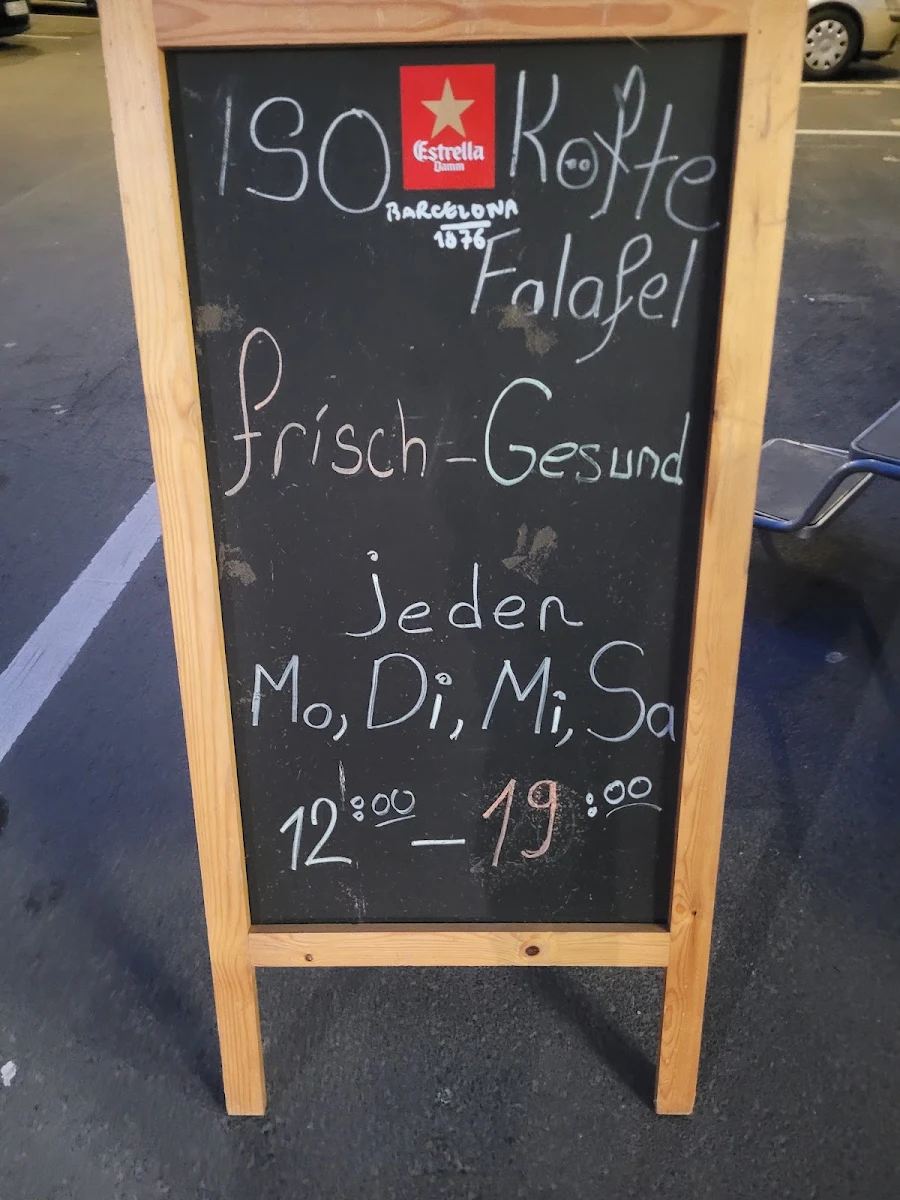 ISO Köfte
Estrella
Damm
BARCELONA
1876
Falafel
frisch - Gesund
jeden
Mo, Di, Mi, Sa
12:00 — 19:00